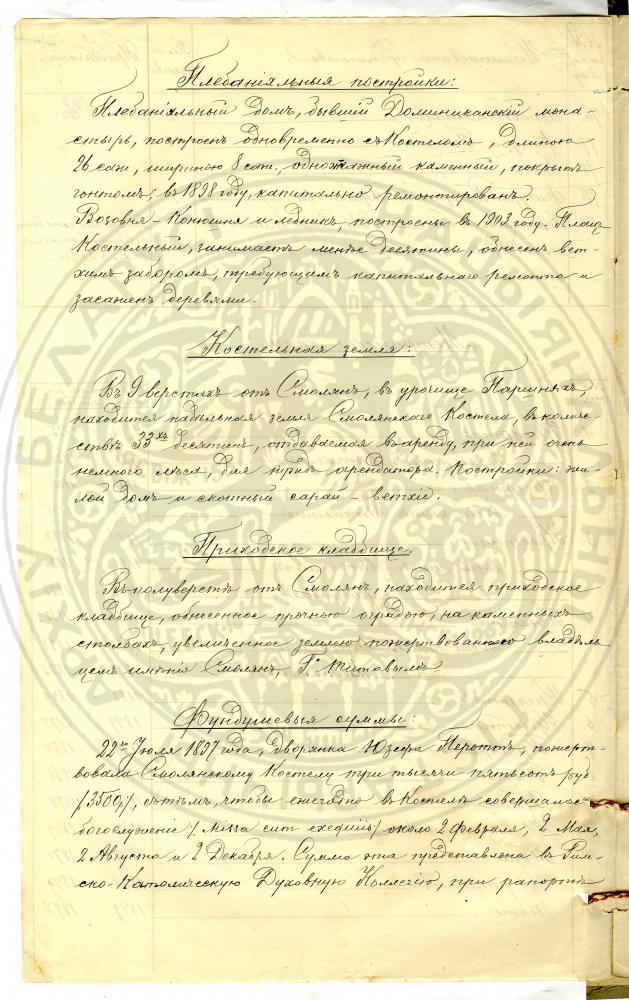 Плебаніяльныя постройки:
Плебаніяльный домъ, бывшій Доминиканскій мона-
стырь, построенъ одновременно съ Костеломъ, длиною
26 саж, шириною 8 саж., одноэтажный каменный, покрытъ
гонтомъ; въ 1898 году, капитально ремонтированъ.
Возовня-Конюшня и ледникъ, построены въ 1903 году. Плацъ
Костельный, занимаетъ менѣе десятины, обнесенъ вет-
химъ заборомъ, требующимъ капитальнаго ремонта и
засаженъ деревьями.
Костельная земля:
Въ 9 верстахъ отъ Смолянъ, въ урочищѣ
находится надѣльная земля Смолянскаго Костела, въ количе-
ствѣ 33хъ десятинъ, отдаваемая въ аренду, при ней очень
немного лѣса, для арендатора. Постройки: жи-
лой домъ и скотный сарай - ветхіе.
Приходское кладбище.
Въ полуверстѣ отъ Смолянъ, находится приходское
кладбище, обнесенное прочною оградою, на каменныхъ
столбахъ, увеличенное землею пожертвованною владѣль
цемъ имѣнія Смолянъ, Гº
Фундушевыя суммы:
22го Іюля 1897 года, Дворянка Юзефа Перотъ, пожерт-
вовала Смолянскому Костелу три тысячи пятьсотъ руб
/3500/, съ тѣмъ, чтобы ежегодно въ Костелѣ совершалось
богослуженіе /Missa cum exequiis/ около 2 Февраля, 2 Мая,
2 Августа и 2 Декабря. Сумма эта представлена въ Рим-
ско-Католическую Духовную Коллегію, при рапортѣ